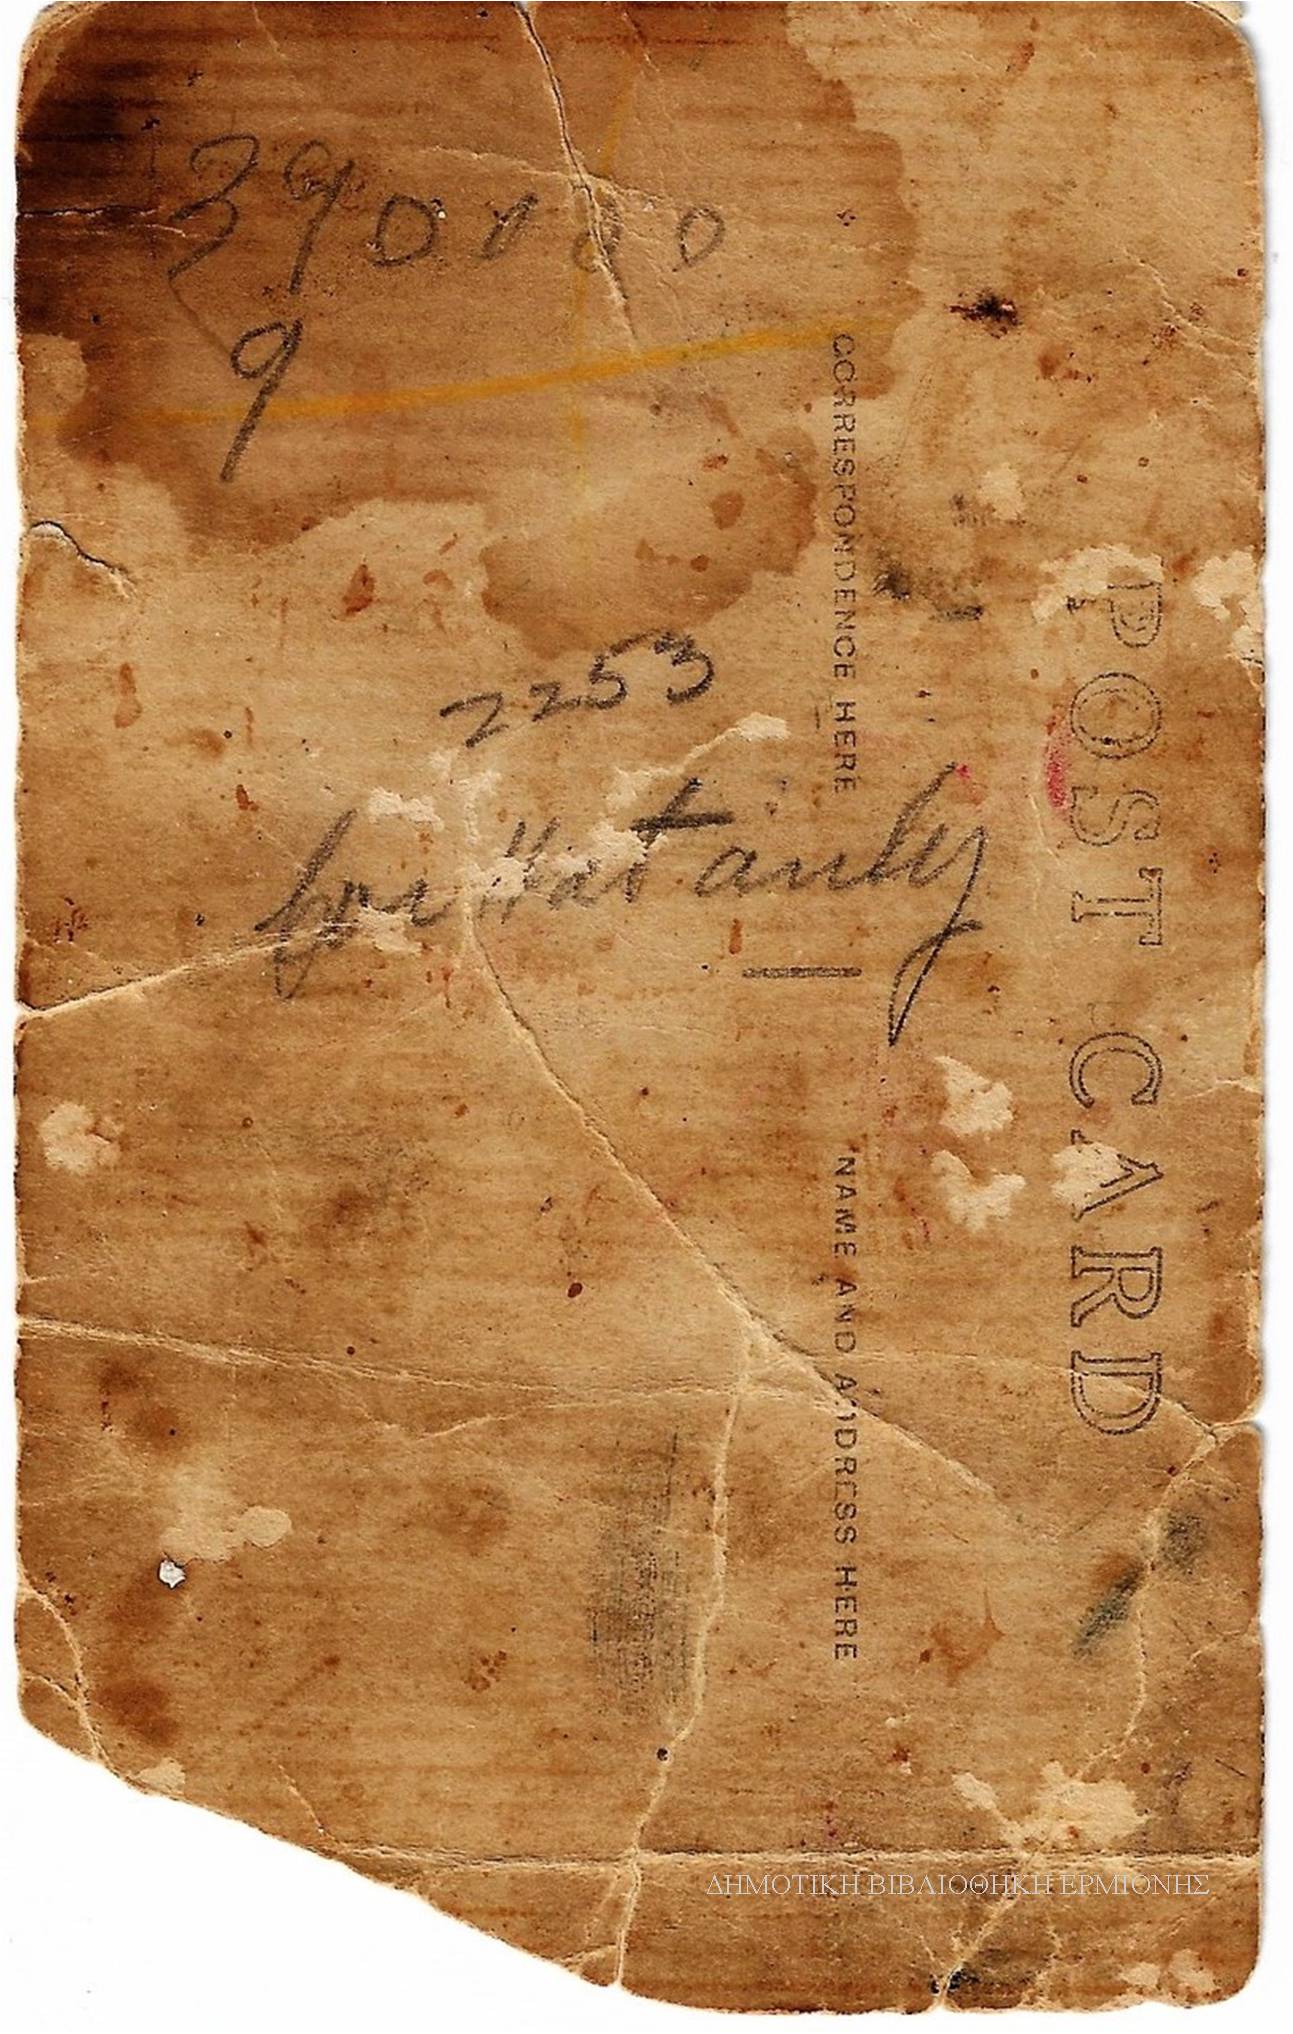 390000
9
2253
POST CARD
CORRESPONDENCE HERE
NAME AND ADDRESS HERE
ΔΗΜΟΤΙΚΗ ΒΙΒΛΙΟΘΗΚΗ ΕΡΜΙΟΝΗΣ